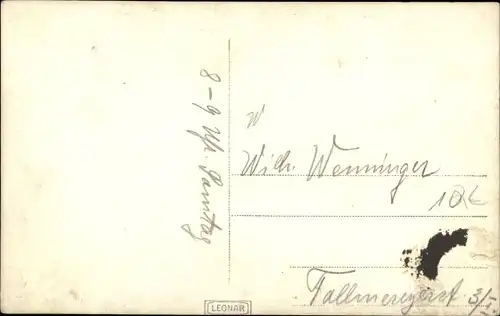 8-9 Uhr. Samstag
W
Wilh. Wenninger
10€
Fallmerayerst 3/I
LEONAR